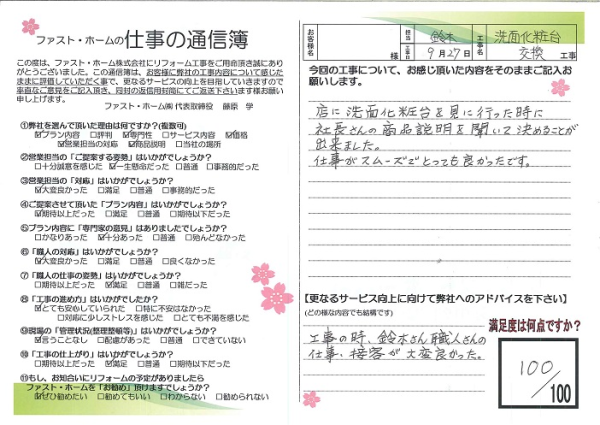 ファスト・ホームの仕事の通信簿
この度は、ファスト・ホーム株式会社にリフォーム工事をご用命頂き誠にあり
がとうございました。この通信簿は、お客様に弊社の工事内容について感じた
ままに評価していただく事で、更なるサービスの向上を目指していきますので
率直なご意見をご記入頂き、同封の返信用封筒にてご返送下さいます様お願い
申し上げます。
ファスト・ホーム㈱ 代表取締役 藤原 学
①弊社を選んで頂いた理由は何ですか?(複数可)
☑プラン内容 □評判 ☑専門性 □サービス内容 ☑価格
☑営業担当の対応 ☑商品説明 □当社の場所
②営業担当の「ご提案する姿勢」はいかがでしょうか?
□十分誠意を感じた ☑一生懸命だった □普通 □事務的だった
③営業担当の「対応」はいかがでしょうか?
☑大変良かった □満足 □普通 □事務的だった
④ご提案させて頂いた「プラン内容」はいかがでしょうか?
☑期待以上だった □満足 □普通 □期待以下だった
⑤プラン内容に「専門家の意見」はありましたでしょうか?
□かなりあった ☑十分あった □普通 □殆んどなかった
⑥「職人の対応」はいかがでしょうか?
☑大変良かった □満足 □普通 □良くなかった
⑦「職人の仕事の姿勢」はいかがでしょうか?
□期待以上だった ☑満足 □普通 □雑だった
⑧「工事の進め方」はいかがでしたか?
☑とても安心していられた □特に不安はなかった
□対応に少しストレスを感じた □とても不満を感じた
⑨現場の「管理状況(整理整頓等)」はいかがでしょうか?
☑言うことなし □配慮があった □普通 □できていない
⑩「工事の仕上がり」はいかがでしょうか?
□期待以上だった ☑満足 □普通 □期待以下だった
⑪もし、お知合いにリフォームの予定がありましたら
ファスト・ホームを「お勧め」頂けますでしょうか?
☑ぜひ勧めたい □勧めてもいい □わからない □勧められない
お客様名 様
担当 鈴木
工事日 9月27日
工事名 洗面化粧台
交換 工事
今回の工事について、お感じ頂いた内容をそのままご記入お
願いします。
店に洗面化粧台を見に行った時に
社長さんの商品説明を聞いて決めることが
出来ました。
仕事がスムーズでとっても良かったです。
【更なるサービス向上に向けて弊社へのアドバイスを下さい】
(どの様な内容でも結構です)
工事の時、鈴木さん職人さんの
仕事・接客が大変良かった。
満足度は何点ですか?
100
/100